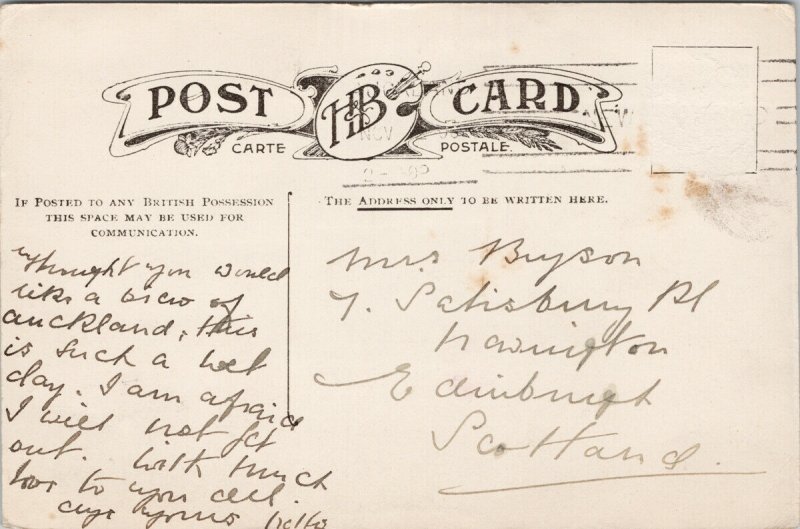 POST HB CARD
CARTE POSTALE.
NOV
IF POSTED TO ANY BRITISH POSSESSION
THIS SPACE MAY BE USED FOR
COMMUNICATION.
THE ADDRESS ONLY TO BE WRITTEN HERE.
thought you would
like a view of
auckland, this
is such a wet
day. I am afraid
I will not get
out. With much
love to you all.
yours
Mrs Bryson
7. Salisbury Pl
Newington
Edinburgh
Scotland.